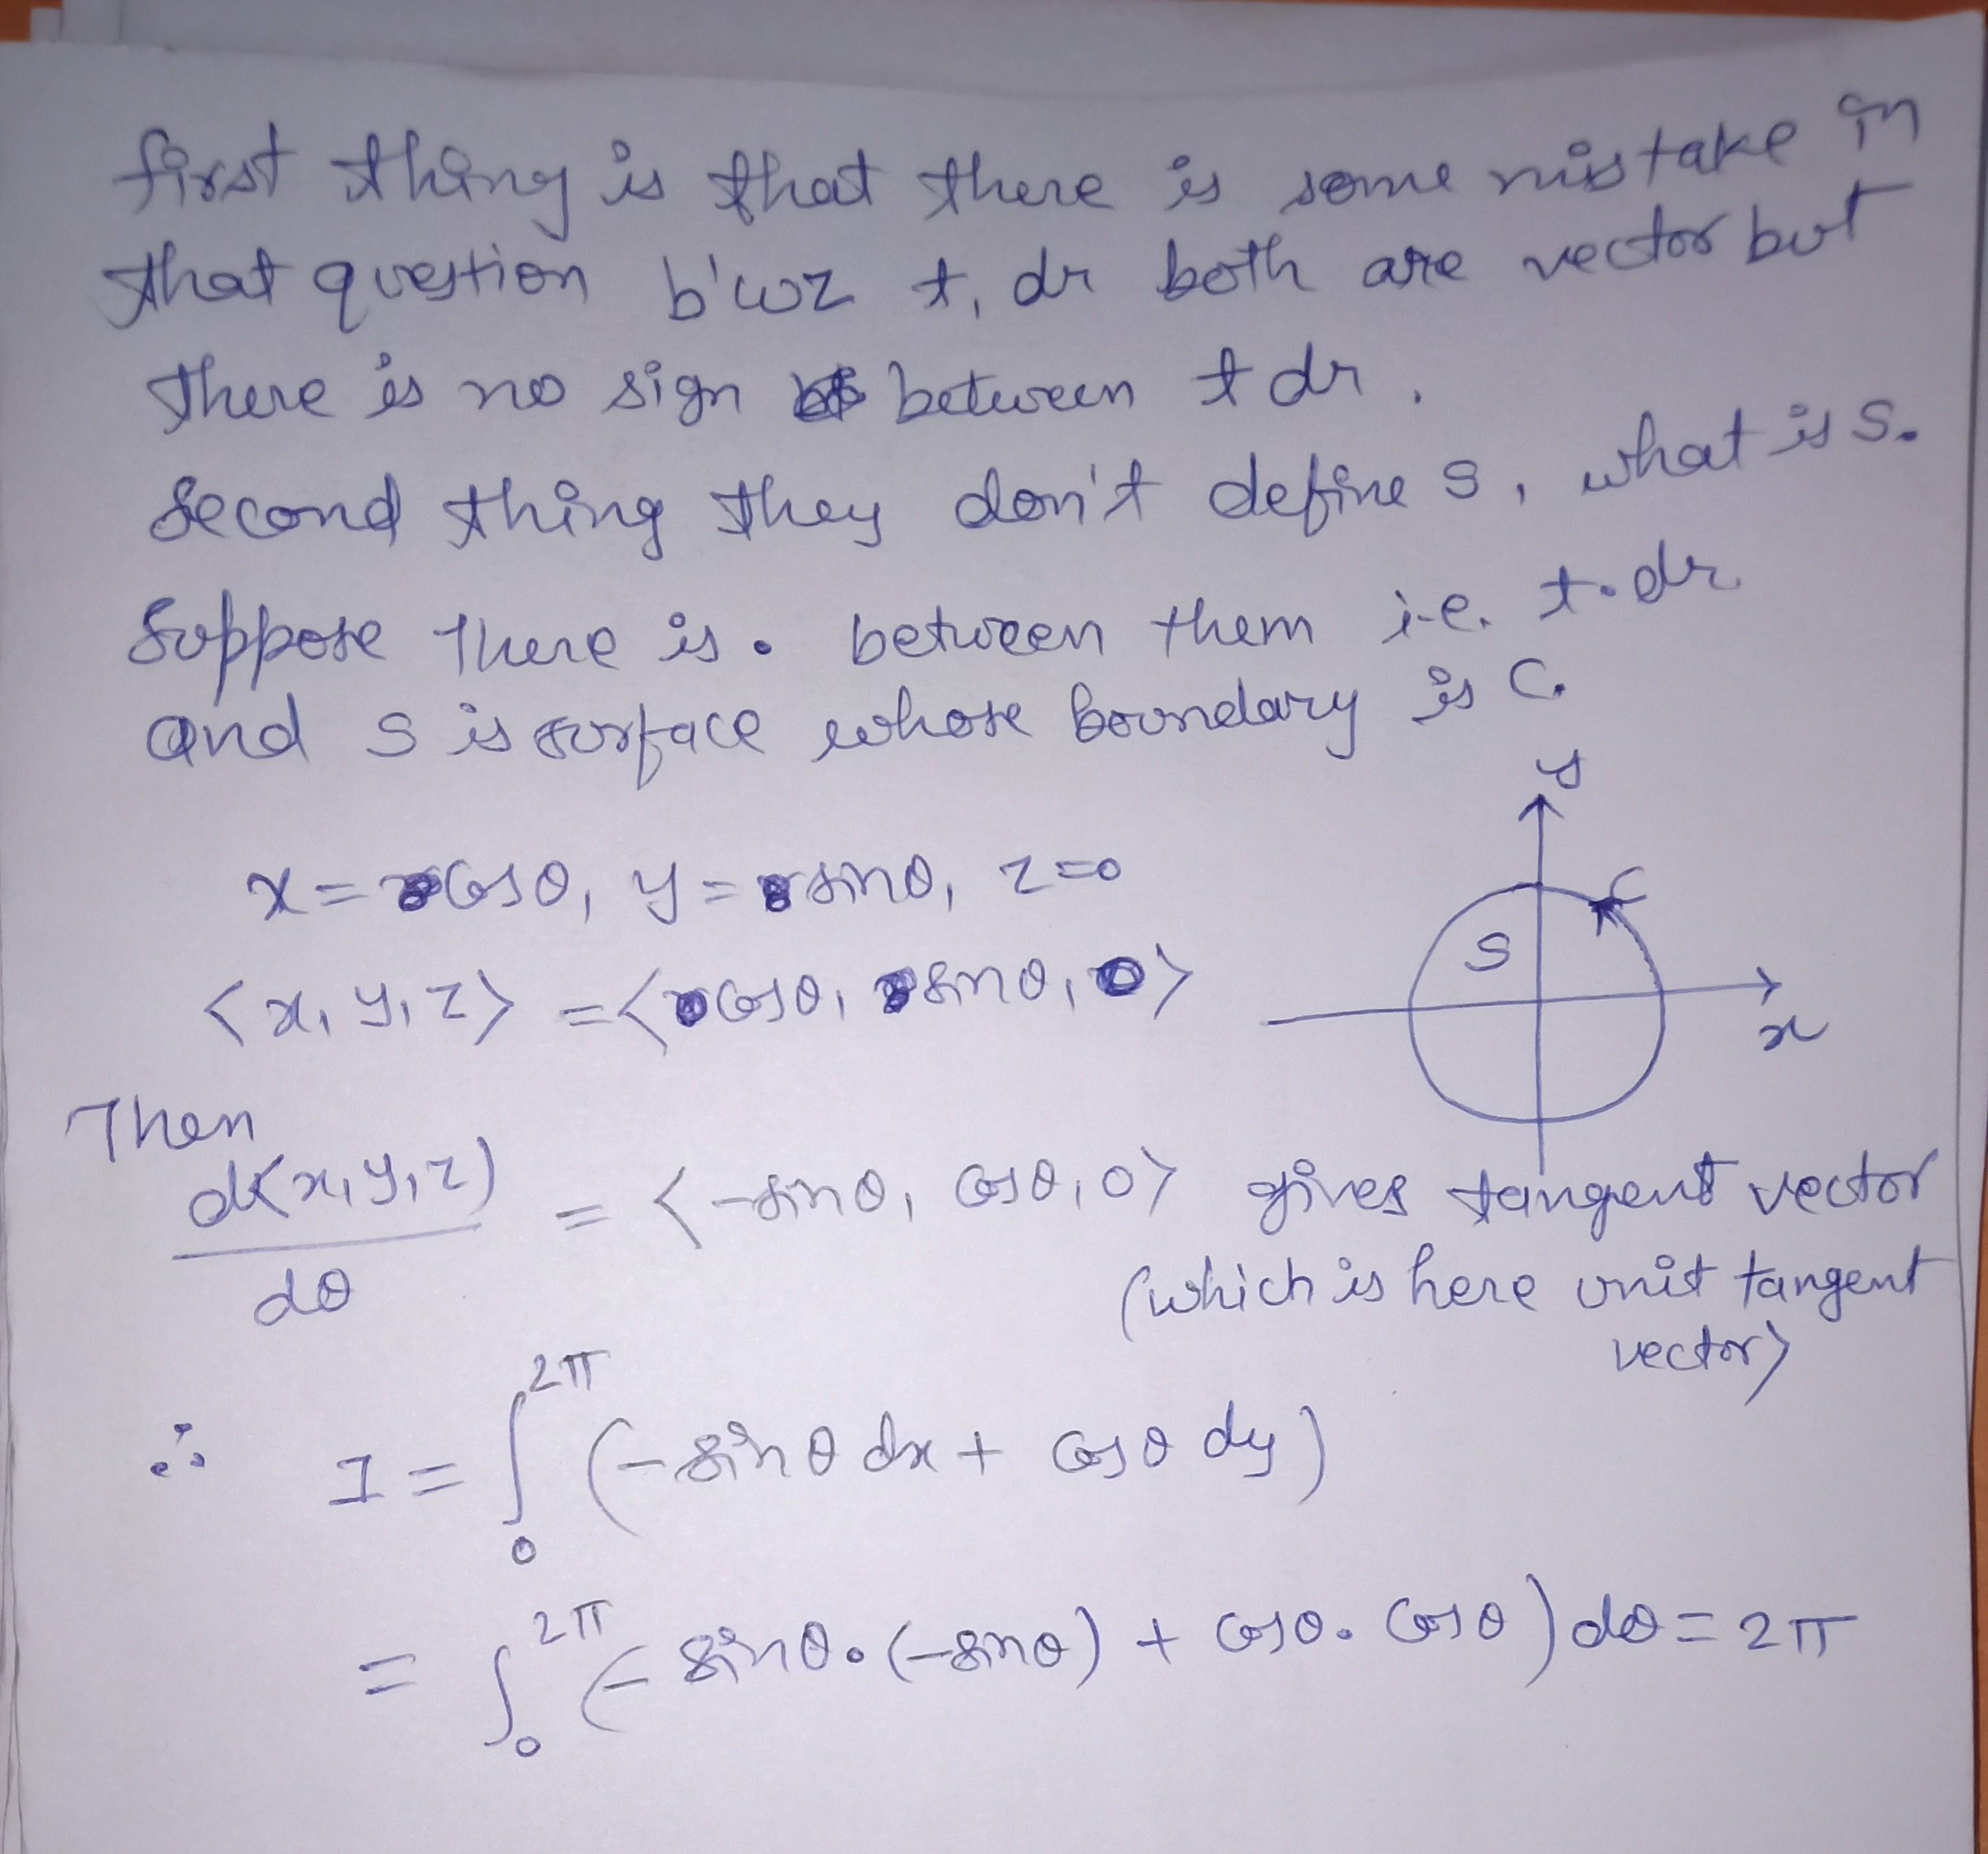 first thing is that there is some mistake in
that question b'wz t, dr both are vector but
there is no sign between t dr.
Second thing they don't define s, what is s.
Suppose there is . between them i.e. t.dr
and s is surface whose boundary is C.
y
x = cosθ, y = sinθ, z=0
C
S
<x, y, z> = <cosθ, sinθ, 0>
x
Then
d<x,y,z> = <-sinθ, cosθ, 0> gives tangent vector
dθ
(which is here unit tangent
vector)
∴ I = ∫₀^2π (-sinθ dx + cosθ dy)
= ∫₀^2π (-sinθ.(-sinθ) + cosθ. cosθ) dθ = 2π